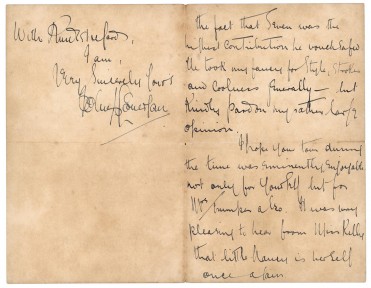 the fact that Seven was the
highest contribution he vouchsafed
He took my fancy for Style, strokes
and coolness generally — but
Kindly pardon my rather large
opinion.
I hope your tour during
the time was eminently enjoyable
not only for yourself but for
Mrs also. It was very
pleasing to hear from Miss Kelly
that little Nancy is herself
once again
With Kindest regards,
I am,
Very Sincerely Yours